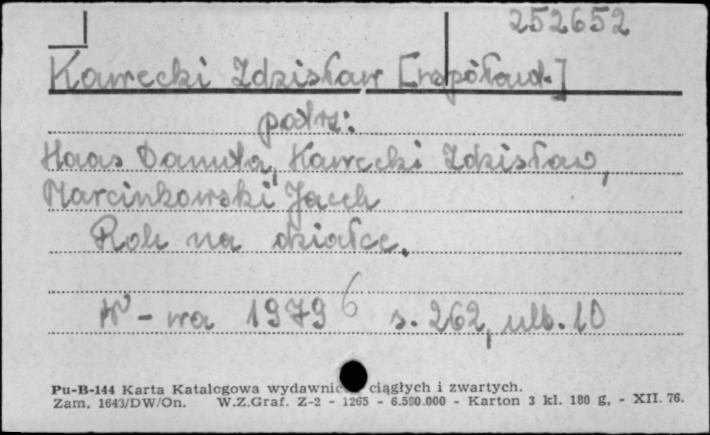 252652
Kawecki Zdzisław [współaut.]
patrz:
Haas Danuta, Kawecki Zdzisław,
Marcinkowski Jacek
Rok na działce.
W-wa 1979 6 s. 262, nlb. 10
Pu-B-144 Karta Katalogowa wydawnic ciągłych i zwartych.
Zam. 1643/DW/On. W.Z.Graf. Z-2 - 1265 - 6.590.000 - Karton 3 kl. 180 g, - XII. 76.